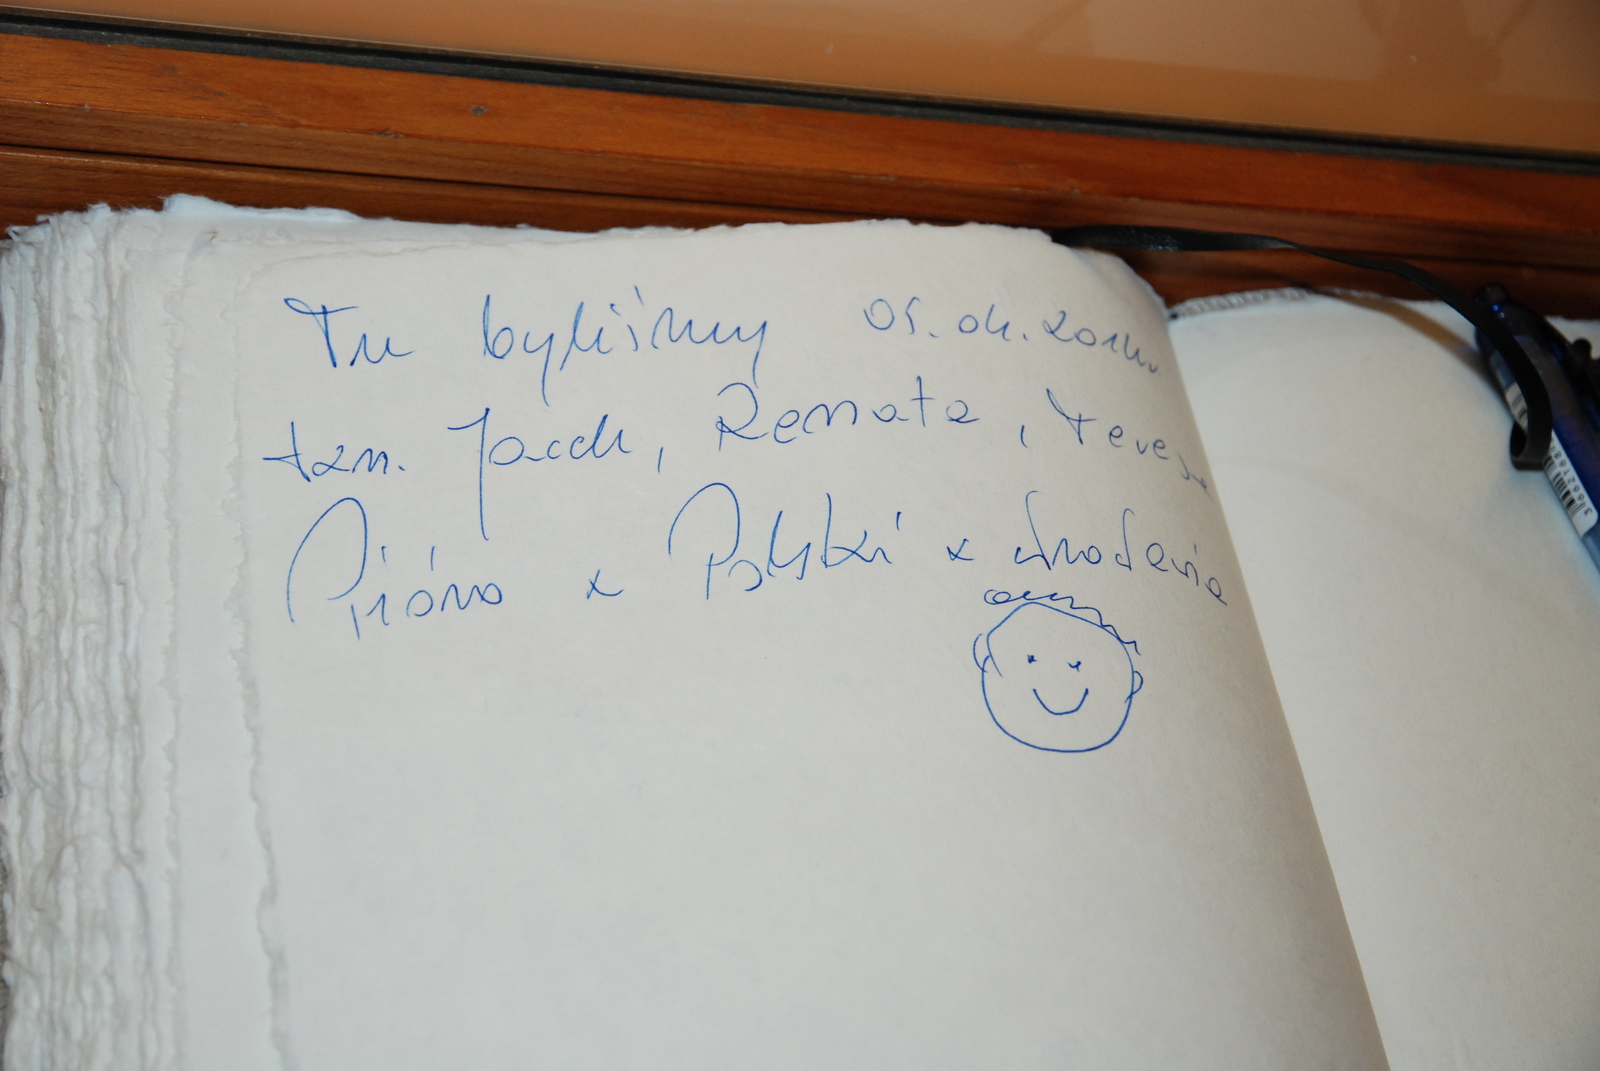 Tu byliśmy 05.04.2014r.
tzn. Jacek, Renata, Teresa
Pióro z Polski z